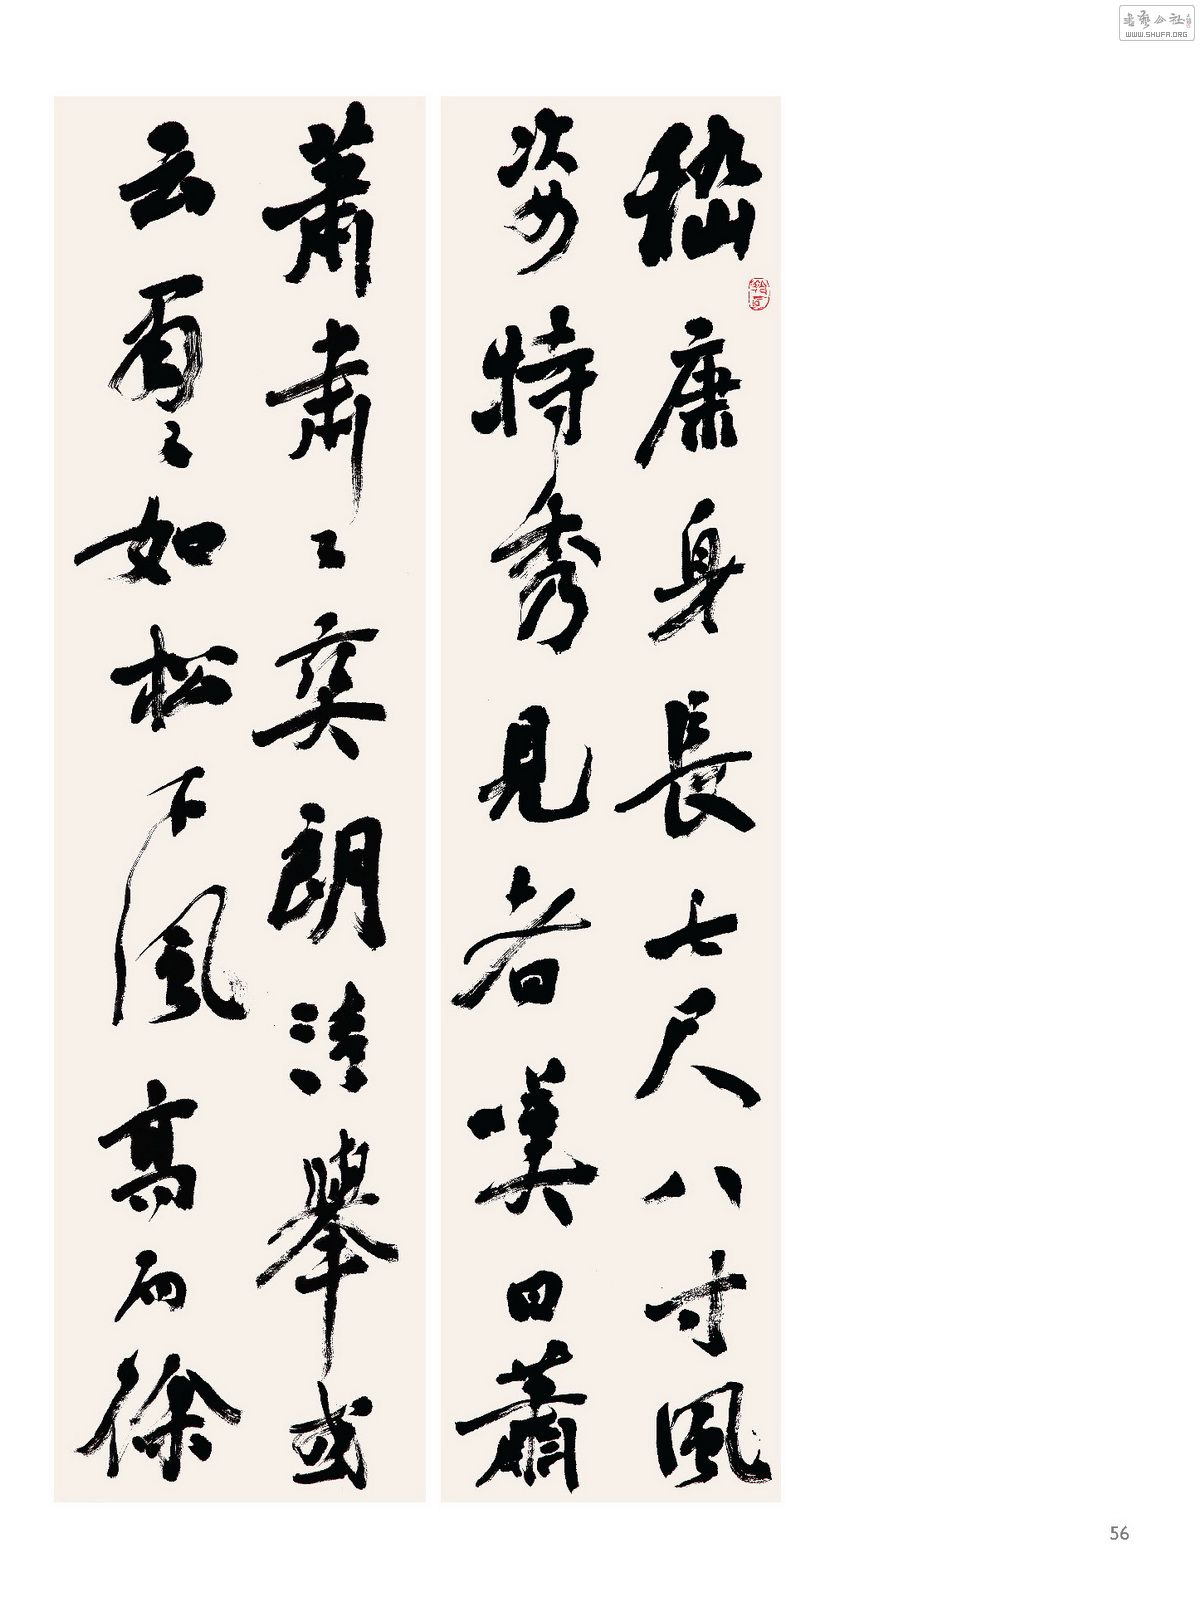 嵇康身長七尺八寸風
姿特秀見者嘆曰蕭
蕭肅〻爽朗清舉或
云肅〻如松下風高而徐
書藝公社
WWW.SHUFA.ORG
56